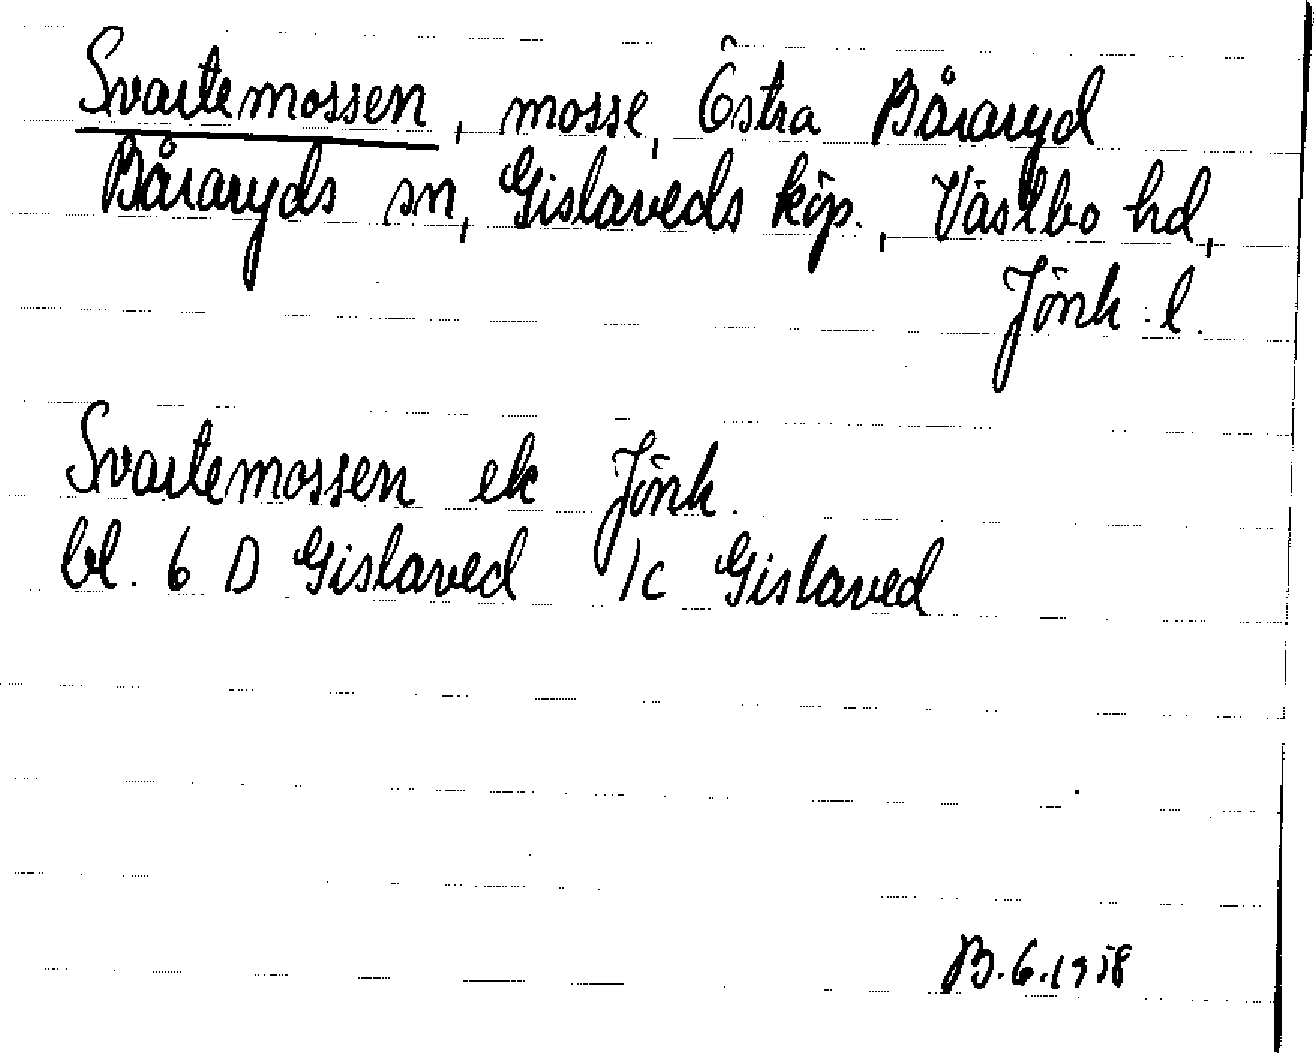 Svartemossen, mosse, Östra Båraryd
Båraryds sn, Gislaveds köp., Västbo hd,
Jönk. l.
Svartemossen ek Jönk.
bl. 6 D Gislaved 1c Gislaved
B.6.1958